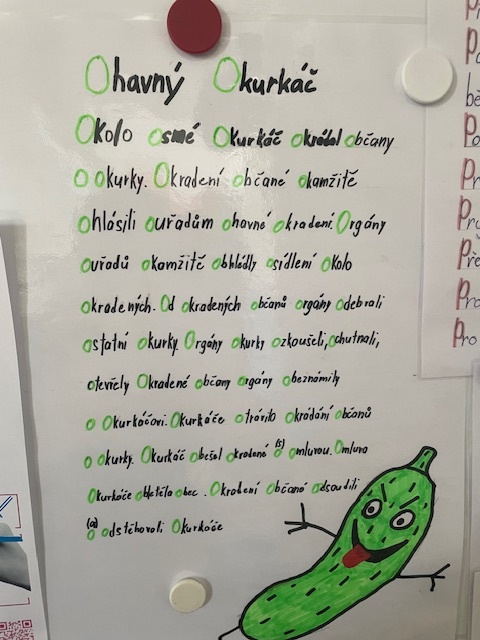 Ohavný Okurkáč
Okolo osmé Okurkáč okrádal občany
o okurky. Okradení občané okamžitě
ohlásili ouřadům ohavné okradení. Orgány
ouřadů okamžitě obhlédly osídlení okolo
okradených. Od okradených občanů orgány odebrali
ostatní okurky. Orgány okurky ozkoušeli, ochutnali,
otevřely Okradené občany orgány obeznámily
o Okurkáčovi. Okurkáče otrávilo okrádání občanů
o okurky. Okurkáč obešel okradené (s) omluvou. Omluva
Okurkáče obletěla obec. Okradení Občané odsoudili
(a) odstěhovali Okurkáče
P
P
bě
Po
Pr
Pr
Pře
Pro
Pro